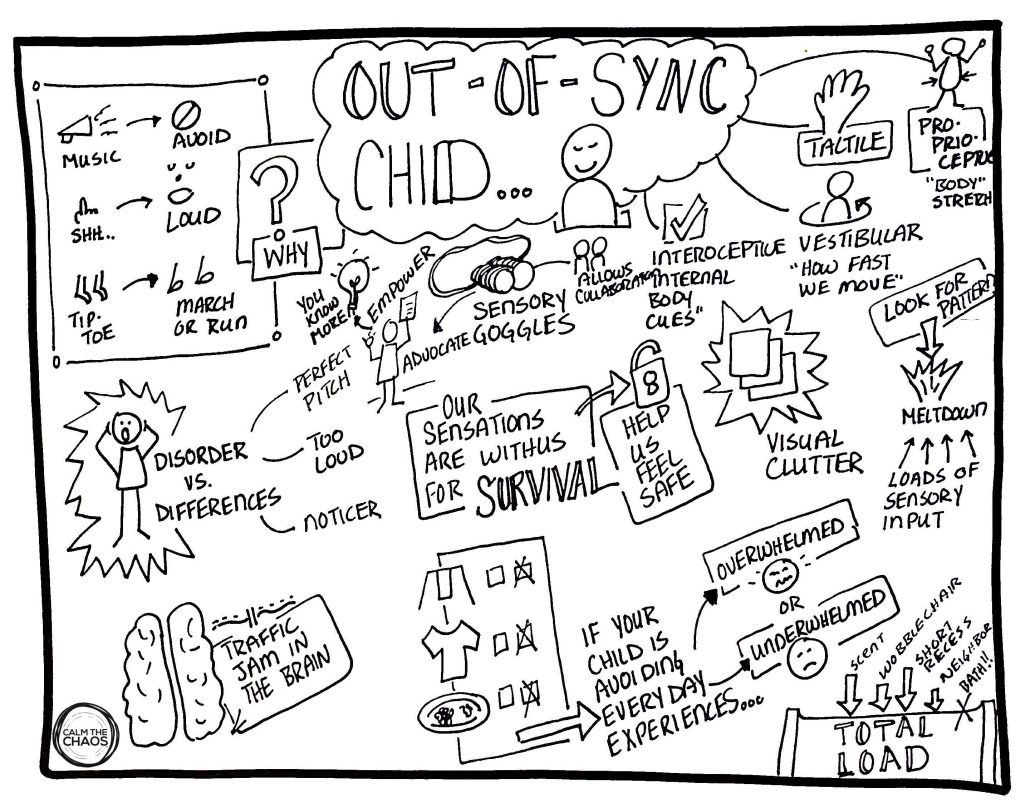 OUT-OF-SYNC
CHILD...
MUSIC
AVOID
SHH..
LOUD
TIP-
TOE
MARCH
OR RUN
?
WHY
TACTILE
PRO-
PRIO-
CEPTIVE
"BODY"
STRETCH
INTEROCEPTIVE
INTERNAL
BODY
CUES"
VESTIBULAR
"HOW FAST
WE MOVE"
YOU
KNOW
MORE!
EMPOWER
ADVOCATE
SENSORY
GOGGLES
ALLOWS
COLLABORATION
LOOK FOR
PATTERN
MELTDOWN
LOADS OF
SENSORY
INPUT
DISORDER
VS.
DIFFERENCES
PERFECT
PITCH
TOO
LOUD
NOTICER
OUR
SENSATIONS
ARE WITH US
FOR SURVIVAL
8
HELP
US
FEEL
SAFE
VISUAL
CLUTTER
TRAFFIC
JAM IN
THE BRAIN
IF YOUR
CHILD IS
AVOIDING
EVERYDAY
EXPERIENCES...
OVERWHELMED
OR
UNDERWHELMED
SCENT
WOBBLE CHAIR
SHORT
RECESS
NEIGHBOR
BATH!!
TOTAL
LOAD
CALM THE
CHAOS